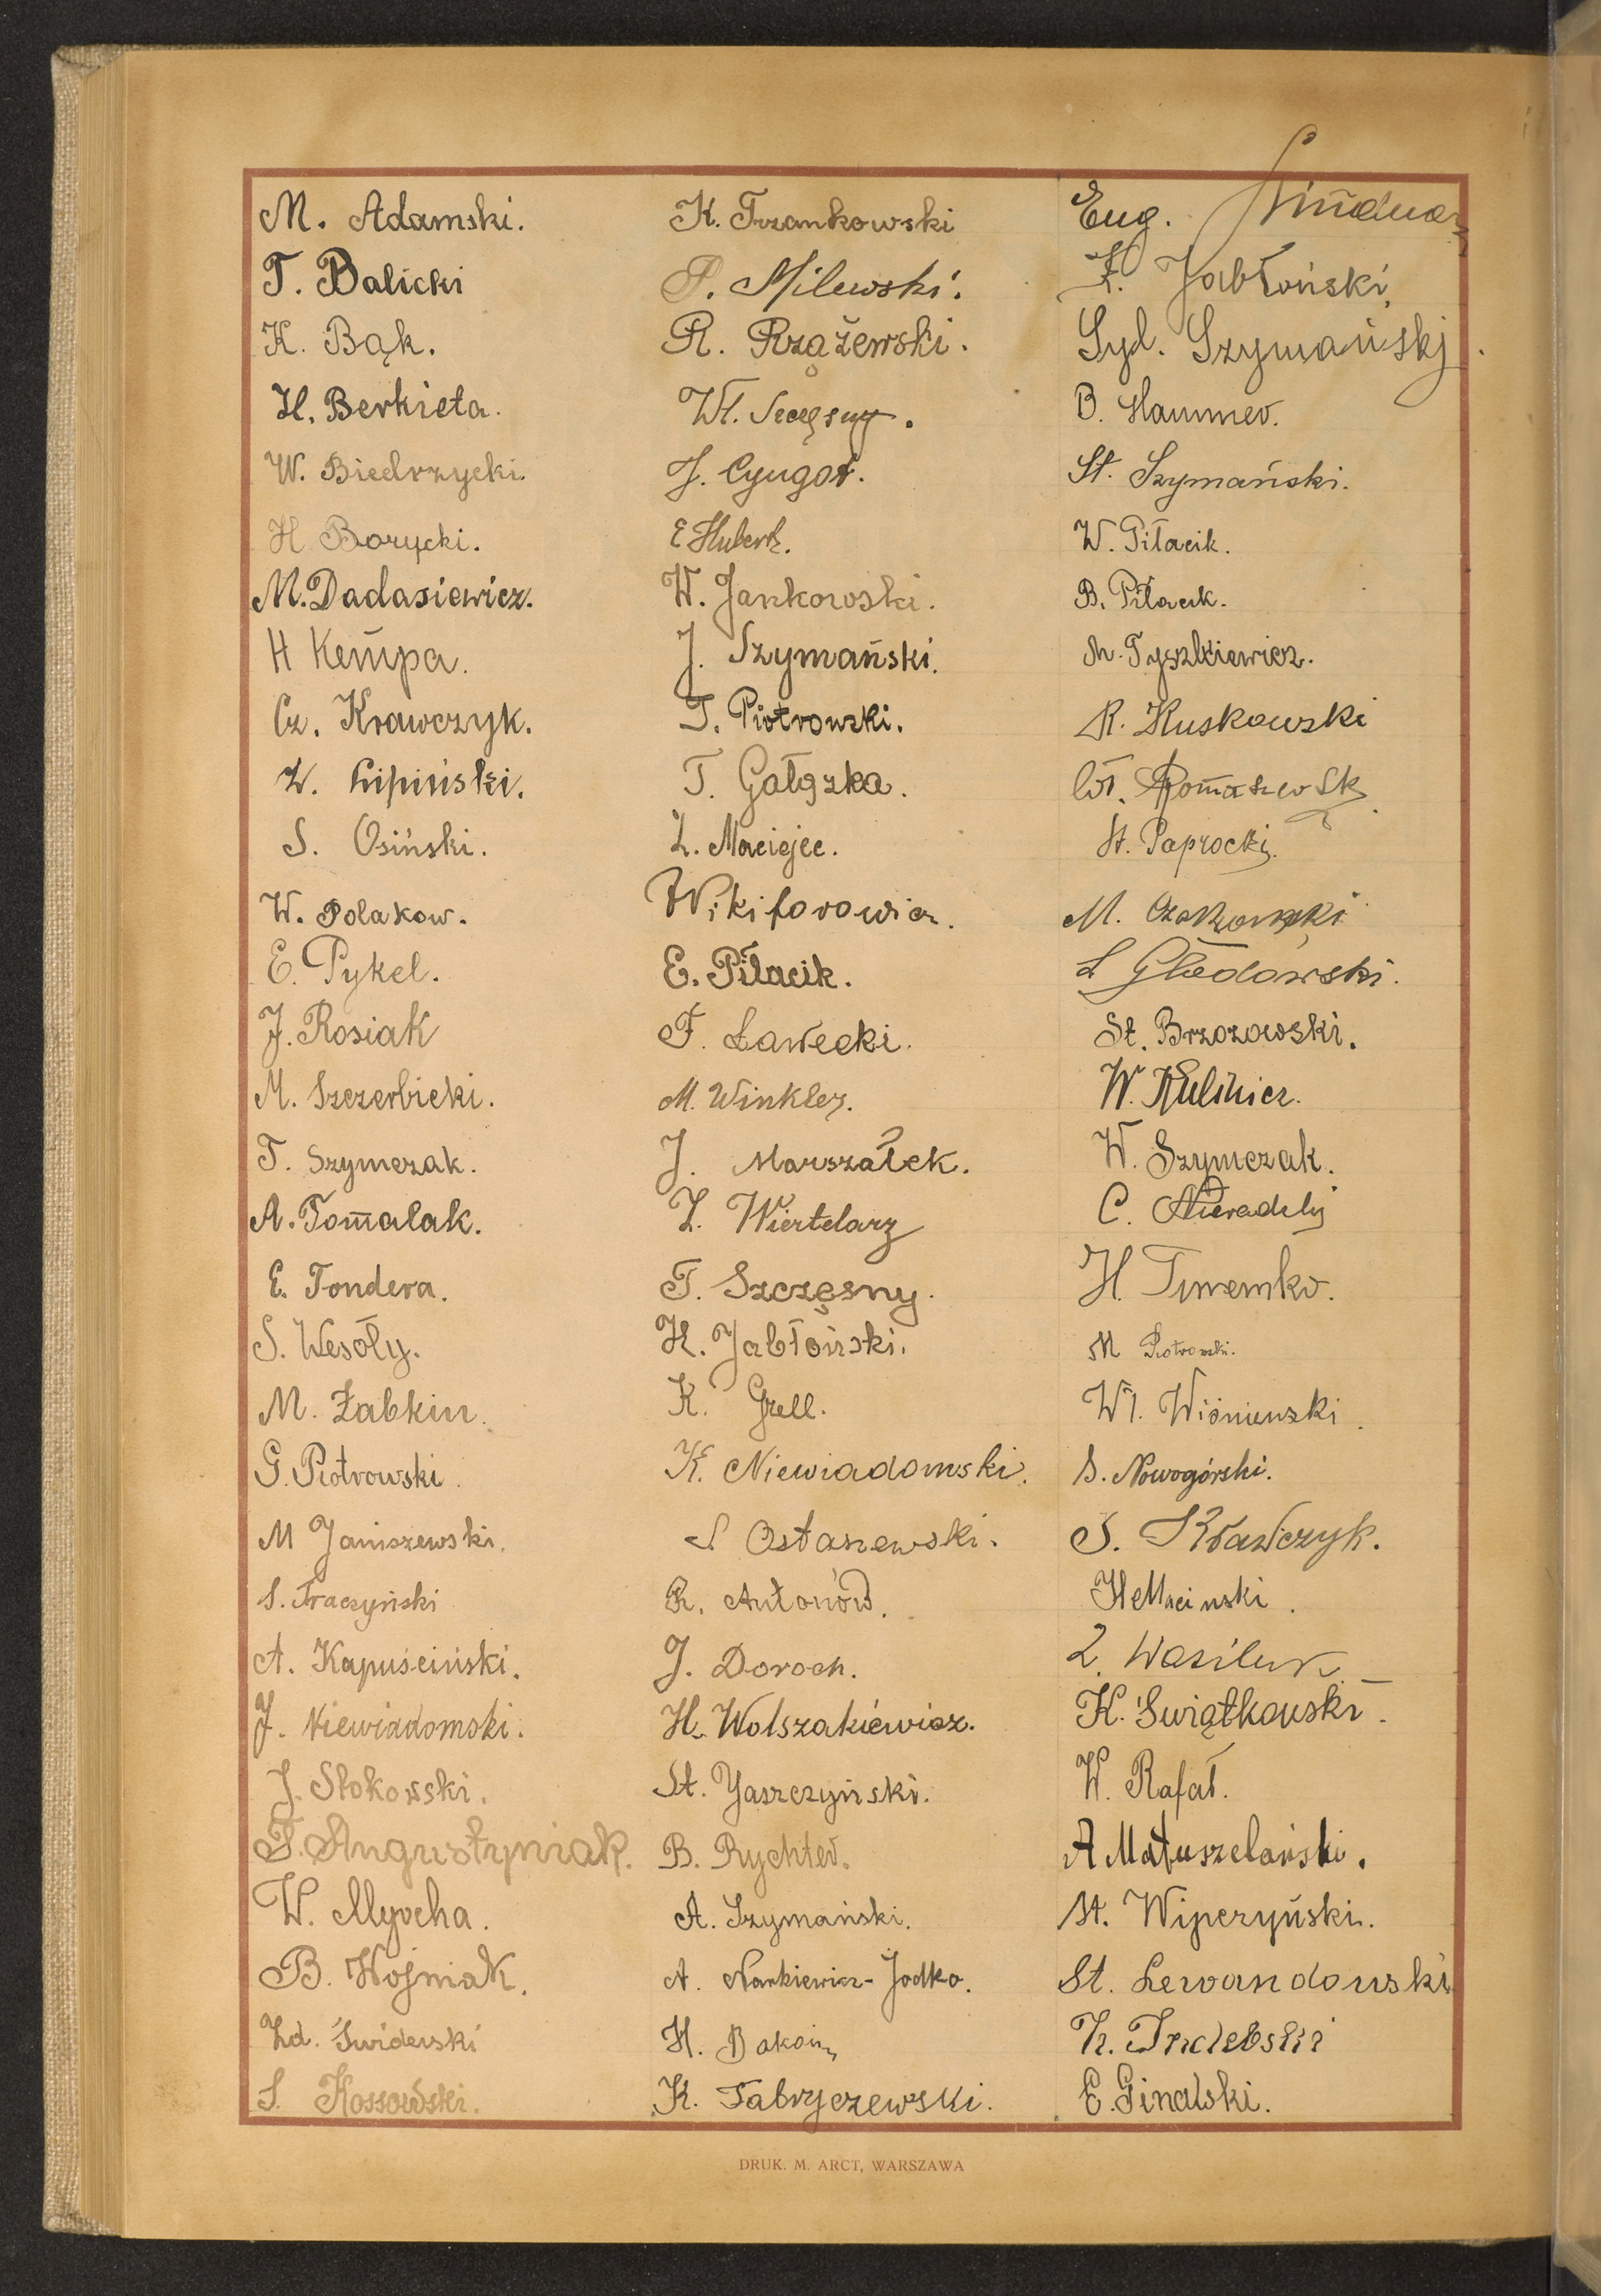 M. Adamski.
T. Balicki
K. Bąk.
H. Berkieta.
W. Biedrzycki.
H Borycki.
M. Dadasiewicz.
H Kempa.
Cz. Krawczyk.
W. Lipiński.
S. Osiński.
W. Polakow.
E. Pykel.
J. Rosiak
M. Szczerbicki.
T. Szymczak.
A. Tomalak.
E. Tondera.
S. Wesoły.
M. Żabkin.
G. Piotrowski.
M Janiszewski.
S. Traczyński
A. Kapuściński.
J. Niewiadomski.
J. Słokowski.
F. Augustyniak.
W. Myrcha.
B. Wojniak.
Zd. Świderski
S. Kossowski.
K. Trzankowski
P. Milewski.
R. Rzążewski.
Wł. Szczęsny.
J. Cyugot.
E Hubert.
W. Jankowski.
J. Szymański.
T. Piotrowski.
T. Gałązka.
Z. Maciejec.
Wikiforowicz.
E. Piłacik.
F. Ławecki.
M. Winkler.
J. Marszałek.
Z. Wiertelarz
T. Szczęsny.
H. Jabłoński.
K. Grell.
K. Niewiadomski.
S Ostaszewski.
R. Antonów.
J. Doroch.
H. Wolszakiewicz.
St. Jaszczyński.
B. Rychter.
A. Szymański.
A. Narkiewicz-Jodko.
H. Bakoin
K. Fabryczewski.
Eug.
F. Jabłoński
Syl. Szymański.
B. Hammer.
St. Szymański.
W. Piłacik.
B. Piłacik.
M. Tyszkiewicz.
R. Kuskowski
Wł. Romaszewsk
St. Paprocki.
M. Czakowski
L Głodowski.
St. Brzozowski.
W. Kulikicz.
W. Szymczak.
C.
H. Timemko.
M Piotrowski.
Wł. Wiśniewski.
S. Nowogórski.
S. Krawczyk.
H Macinski.
Z. Wasiluk
K. Świątkowski.
W. Rafał.
A Matuszelański.
St. Wiperzyński.
St. Lewandowski
K. Trzciebski
E. Ginalski.
DRUK. M. ARCT, WARSZAWA